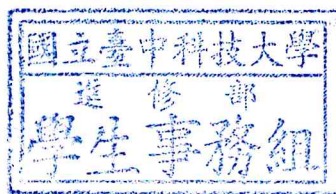 國立臺中科技大學
進修部
學生事務組